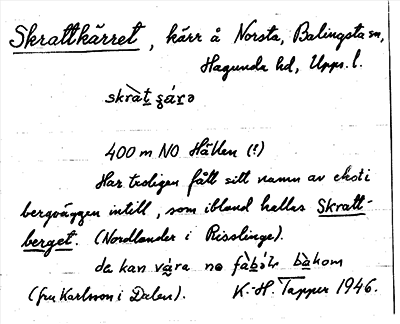 Skrattkärret, kärr å Norsta, Balingsta sn,
Hagunda hd, Upps. l.
skràt ʂárə
400 m NO Hällen (!)
Har troligen fått sitt namn av ekot i
bergväggen intill, som ibland kallas Skratt-
berget. (Nordlander i Risslinge).
de kan vara no bakom
(fru Karlsson i Dalen). K.-H. Tapper 1946.